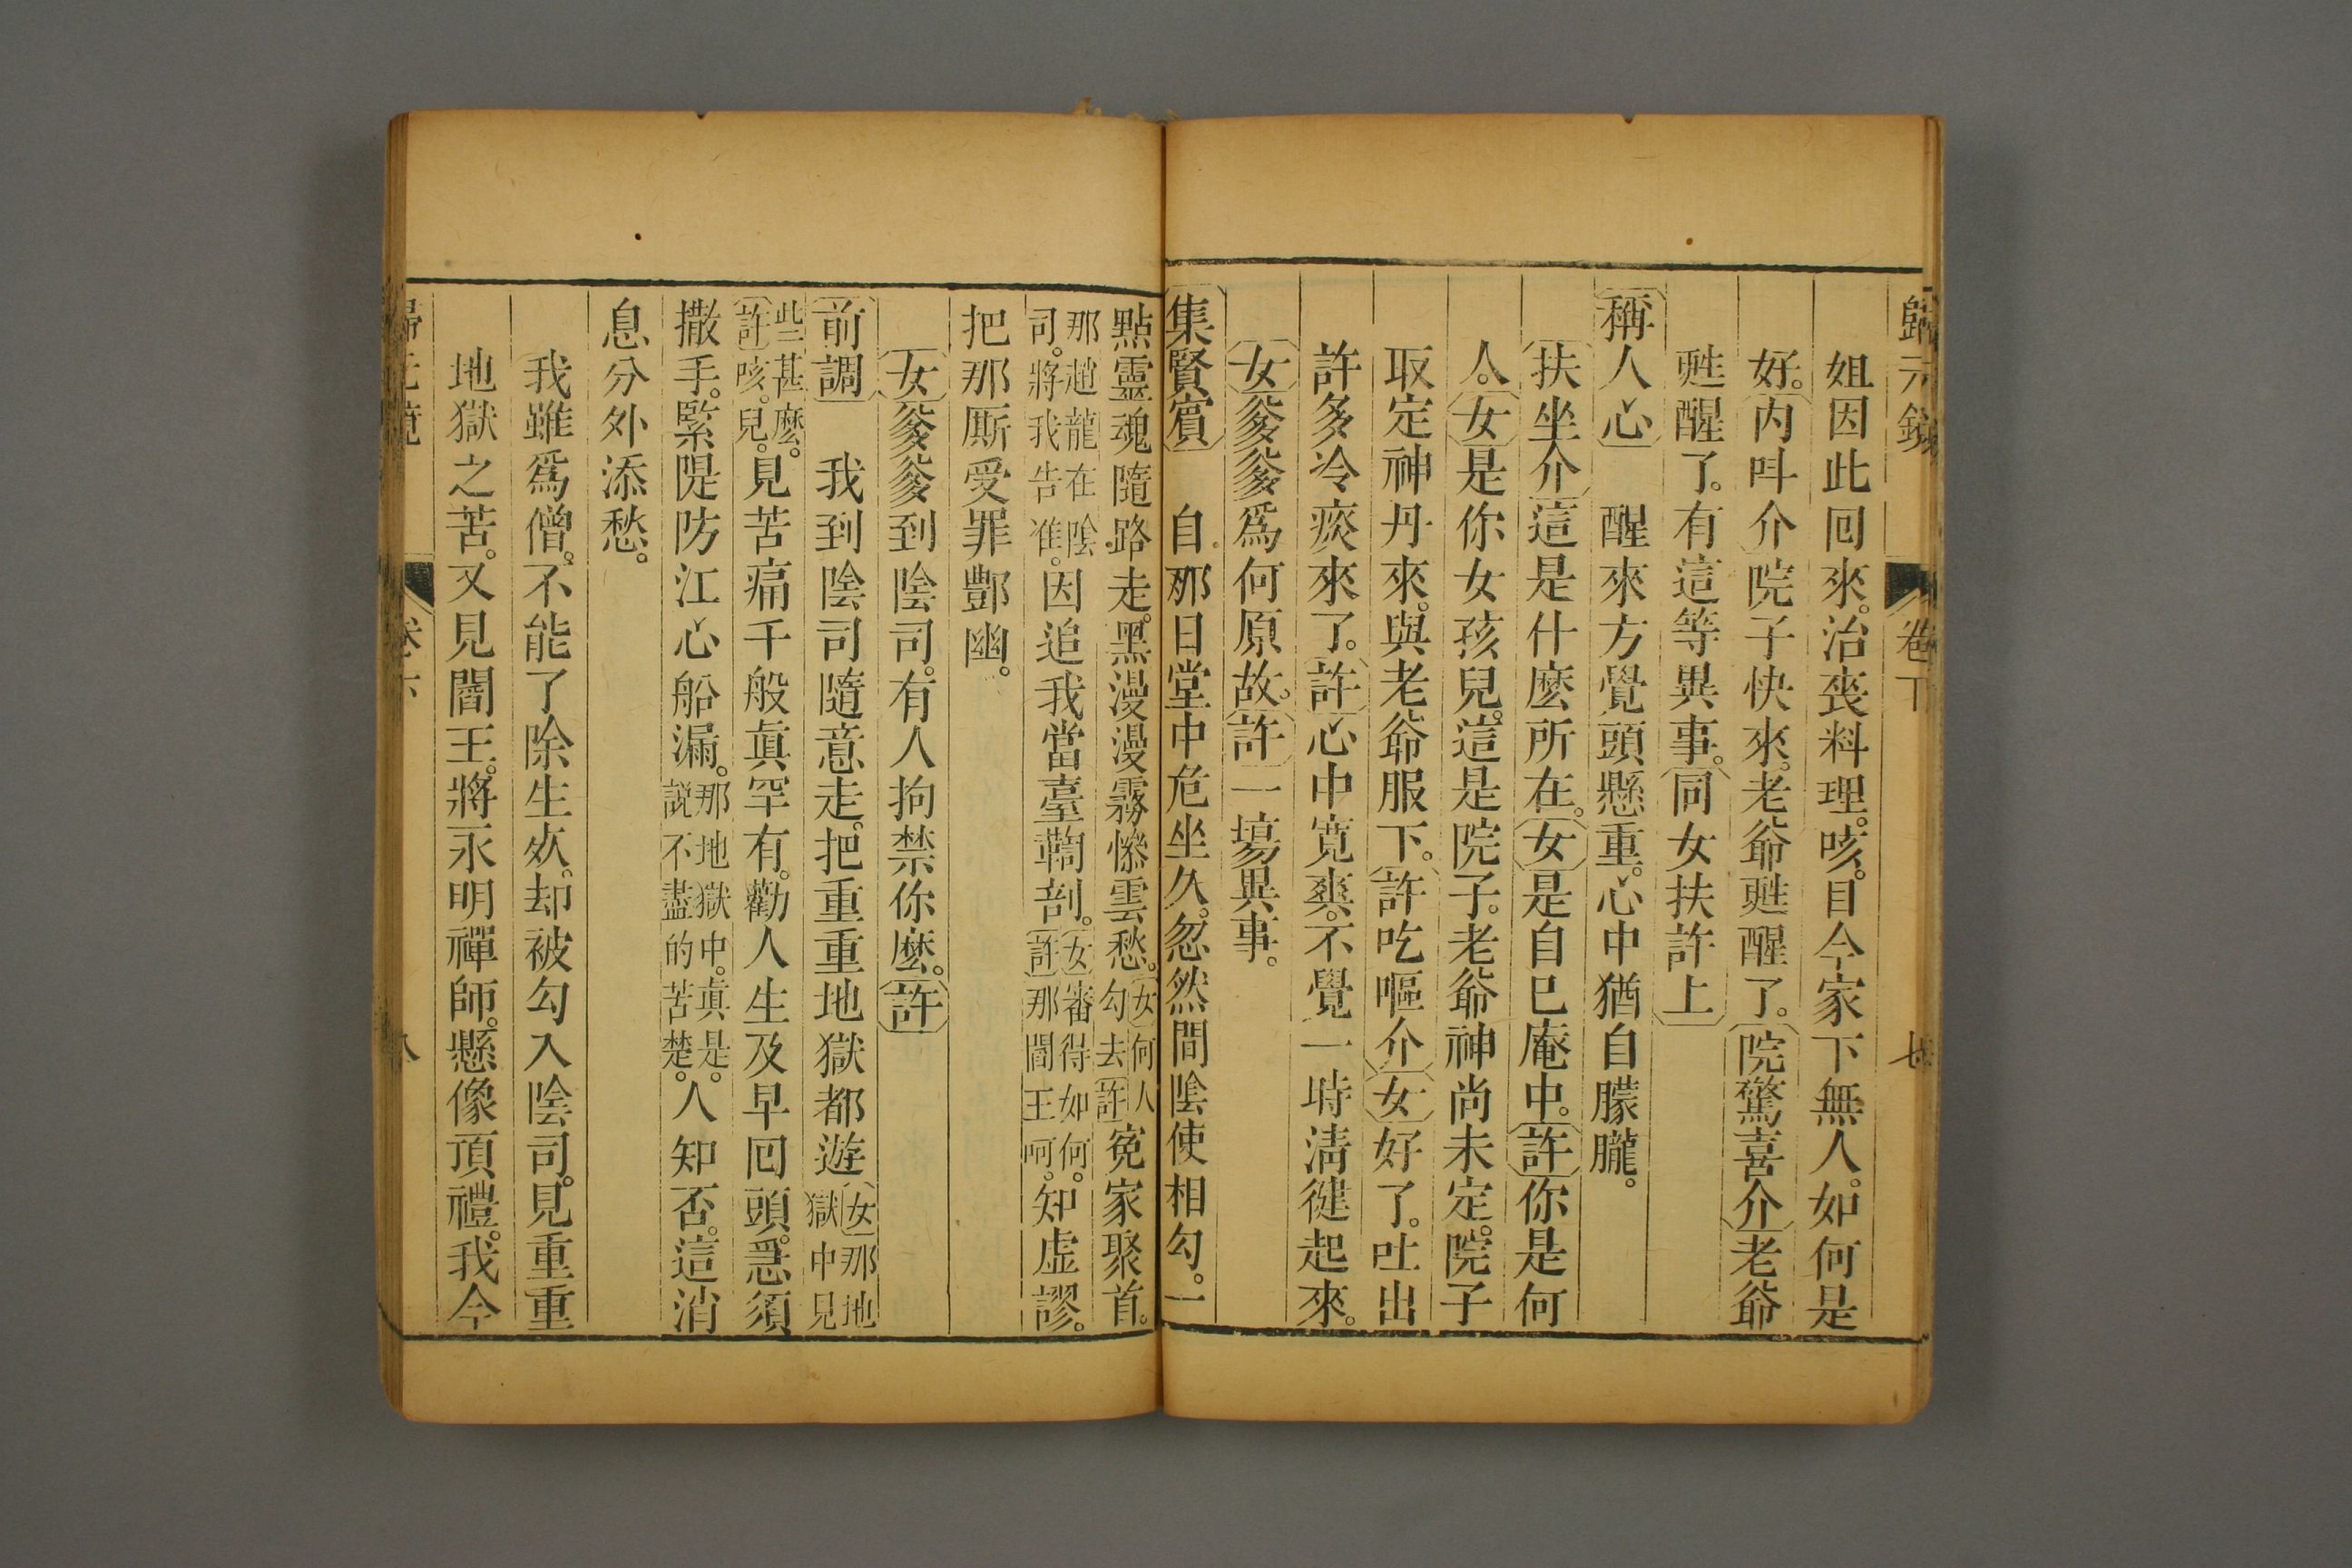 歸元鏡 卷下 七
姐因此囘來。治喪料理。咳。目今家下無人。如何是
好。內呌介院子快來。老爺甦醒了。院驚喜介老爺
甦醒了。有這等異事。同女扶許上
稱人心 醒來方覺頭懸重。心中猶自朦朧。
扶坐介這是什麼所在。女是自巳庵中。許你是何
人。女是你女孩兒。這是院子。老爺神尚未定。院子
取定神丹來。與老爺服下。許吃嘔介女好了。吐出
許多冷痰來了。許心中寬爽。不覺一時淸健起來。
女爹爹爲何原故。許一塲異事。
集賢賓 自那日堂中危坐久。忽然間陰使相勾。一
點靈魂隨路走。黑漫漫霧慘雲愁。女何人勾去許寃家聚首。
那趙龍在陰司。將我告准。因追我當臺鞫剖。女審得如何。許那閻王呵。知虛謬。
把那厮受罪酆幽。
女爹爹到陰司。有人拘禁你麼。許
前調 我到陰司隨意走。把重重地獄都遊女那地獄中見
些甚麼。許咳。兒。見苦痛千般眞罕有。勸人生及早囘頭。急須
撒手。緊隄防江心船漏。那地獄中。眞是。說不盡的苦楚。人知否。這消
息分外添愁。
我雖爲僧。不能了除生死。却被勾入陰司。見重重
地獄之苦。又見閻王。將永明禪師。懸像頂禮。我今
歸元鏡 卷下 八